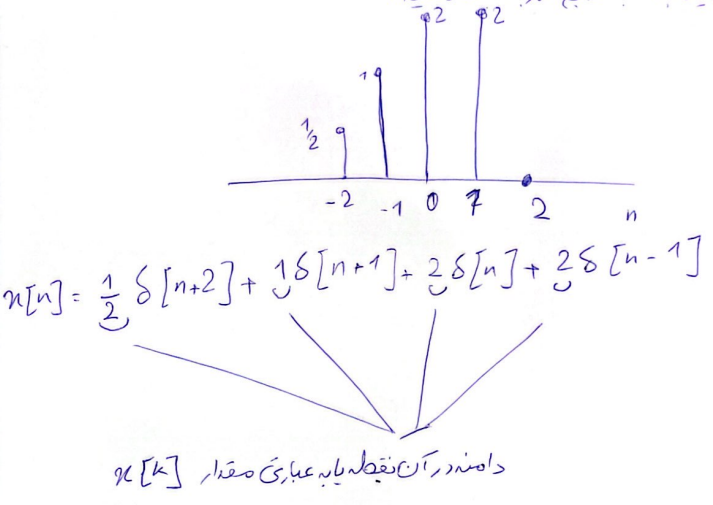 2 2
1
1/2
-2 -1 0 1 2 n
x[n] = 1/2 δ[n+2] + 1δ[n+1] + 2δ[n] + 2δ[n-1]
دامنه در آن نقطه یا به عبارتی مقدار x[k]